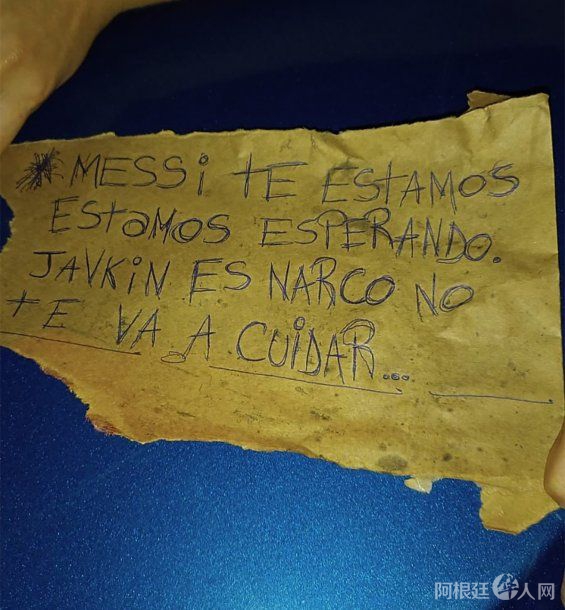 MESSi tE EStAMOS
EStaMOS ESPERANDO.
JAVKiN ES NARCO NO
tE VA A CUiDAR...
阿根廷华人网